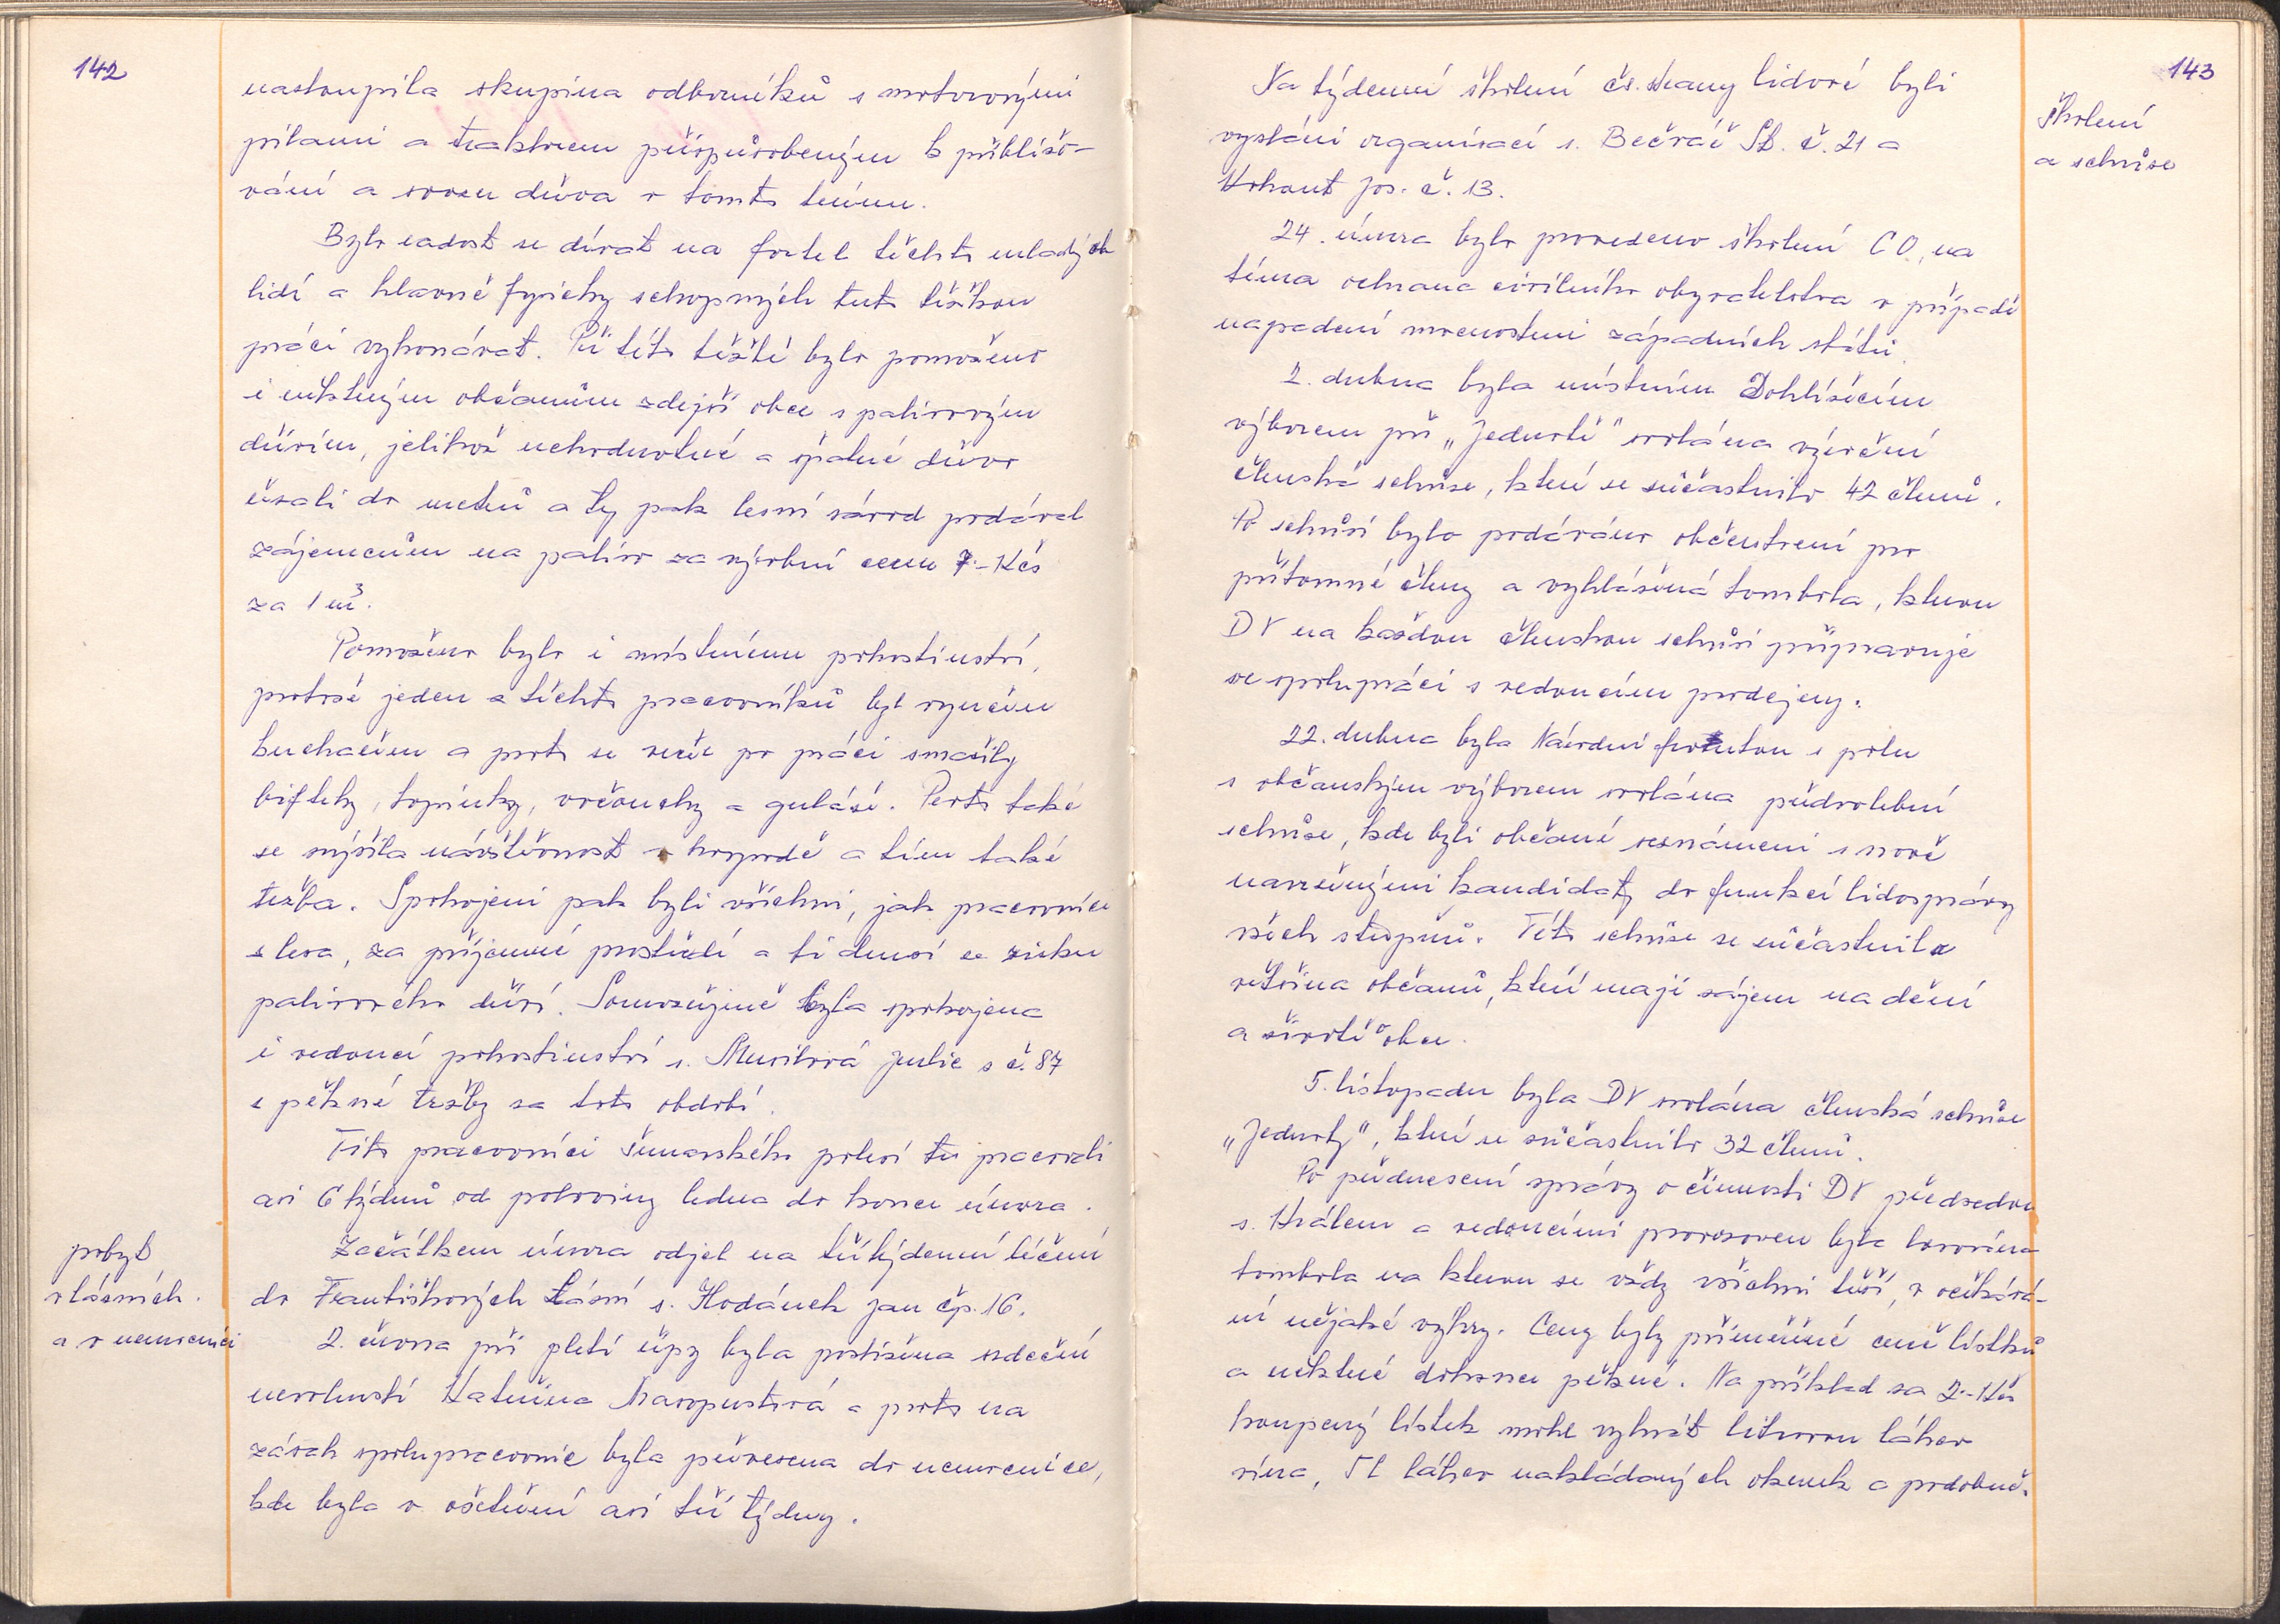 142
nastoupila skupina odborníků s motorovými
pilami a traktorem přizpůsobeným k přibližo-
vání a svozu dříva v tomto terénu.
Bylo radost se dívat na fortel těchto mladých
lidí a hlavně fyzicky schopných tuto těžkou
práci vykonávat. Při této těžbě bylo pomoženo
i některým občanům zdejší obce s palivovým
dřívím, jelikož nehodnotné a špatné dřívo
řezali do metrů a ty pak lesní závod prodával
zájemcům na palivo za výrobní cenu 7.- Kčs
za 1 m³.
Pomoženo bylo i místnímu pohostinství,
protože jeden z těchto pracovníků byl vyučen
kuchařem a proto se večer po práci smažily
bifteky, topinky, vrčounky a guláše. Proto také
se zvýšila návštěvnost v hospodě a tím také
tržba. Spokojeni pak byli všichni, jak pracovníci
z lesa, za příjemné prostředí a ti druzí ze zisku
palivového dříví. Samozřejmě byla spokojena
i vedoucí pohostinství s. Musilová Julie s č. 87
z pěkné tržby za toto období.
Tito pracovníci šumavského polesí tu pracovali
asi 6 týdnů od poloviny ledna do konce února.
pobyt
v lázních
a v nemocnici
Začátkem února odjel na třítýdenní léčení
do Františkových Lázní s. Hodánek Jan čp. 16.
2. června při pletí řepy byla postižena srdeční
nevolností Kateřina Masopustová a proto na
zásah spolupracovnic byla převezena do nemocnice,
kde byla v ošetření asi tři týdny.
143
Školení
a schůze
Na týdenní školení čs. strany lidové byli
vysláni organisací s. Bečvář St. č. 21 a
Kohout Jos. č. 13.
24. února bylo provedeno školení CO, na
téma ochrana civilního obyvatelstva v případě
napadení mocnostmi západních států.
2. dubna byla místním Dohlížecím
výborem při „Jednotě" svolána výroční
členská schůze, které se zúčastnilo 42 členů.
Po schůzi bylo podáváno občerstvení pro
přítomné členy a vyhlášená tombola, kterou
DV na každou členskou schůzi připravuje
ve spolupráci s vedoucím prodejny.
22. dubna byla Národní frontou s polu
s občanským výborem svolána předvolební
schůze, kde byli občané seznámeni s nově
navrženými kandidáty do funkcí lidosprávy
všech stupňů. Této schůze se zúčastnila
většina občanů, kteří mají zájem na dění
a životě obce.
5. listopadu byla DV svolána členská schůze
„Jednoty", které se zúčastnilo 32 členů.
Po přednesení zprávy o činnosti DV předsedou
s. Králem a vedoucími provozoven byla losována
tombola na kterou se vždy všichni těší, v očekává-
ní nějaké výhry. Ceny byly přiměřené ceně lístků
a některé dokonce pěkné. Na příklad za 2.- Kčs
koupený lístek mohl vyhrát litrovou láhev
vína, 5 l láhev nakládaných okurek a podobně.